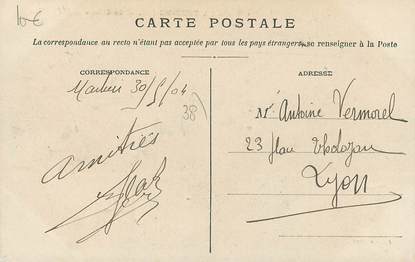 10€
CARTE POSTALE
La correspondance au recto n'étant pas acceptée par tous les pays étrangers, se renseigner à la Poste
CORRESPONDANCE
30/5/04
38
Amitiés
ADRESSE
Mr Antoine Vermorel
23
Lyon